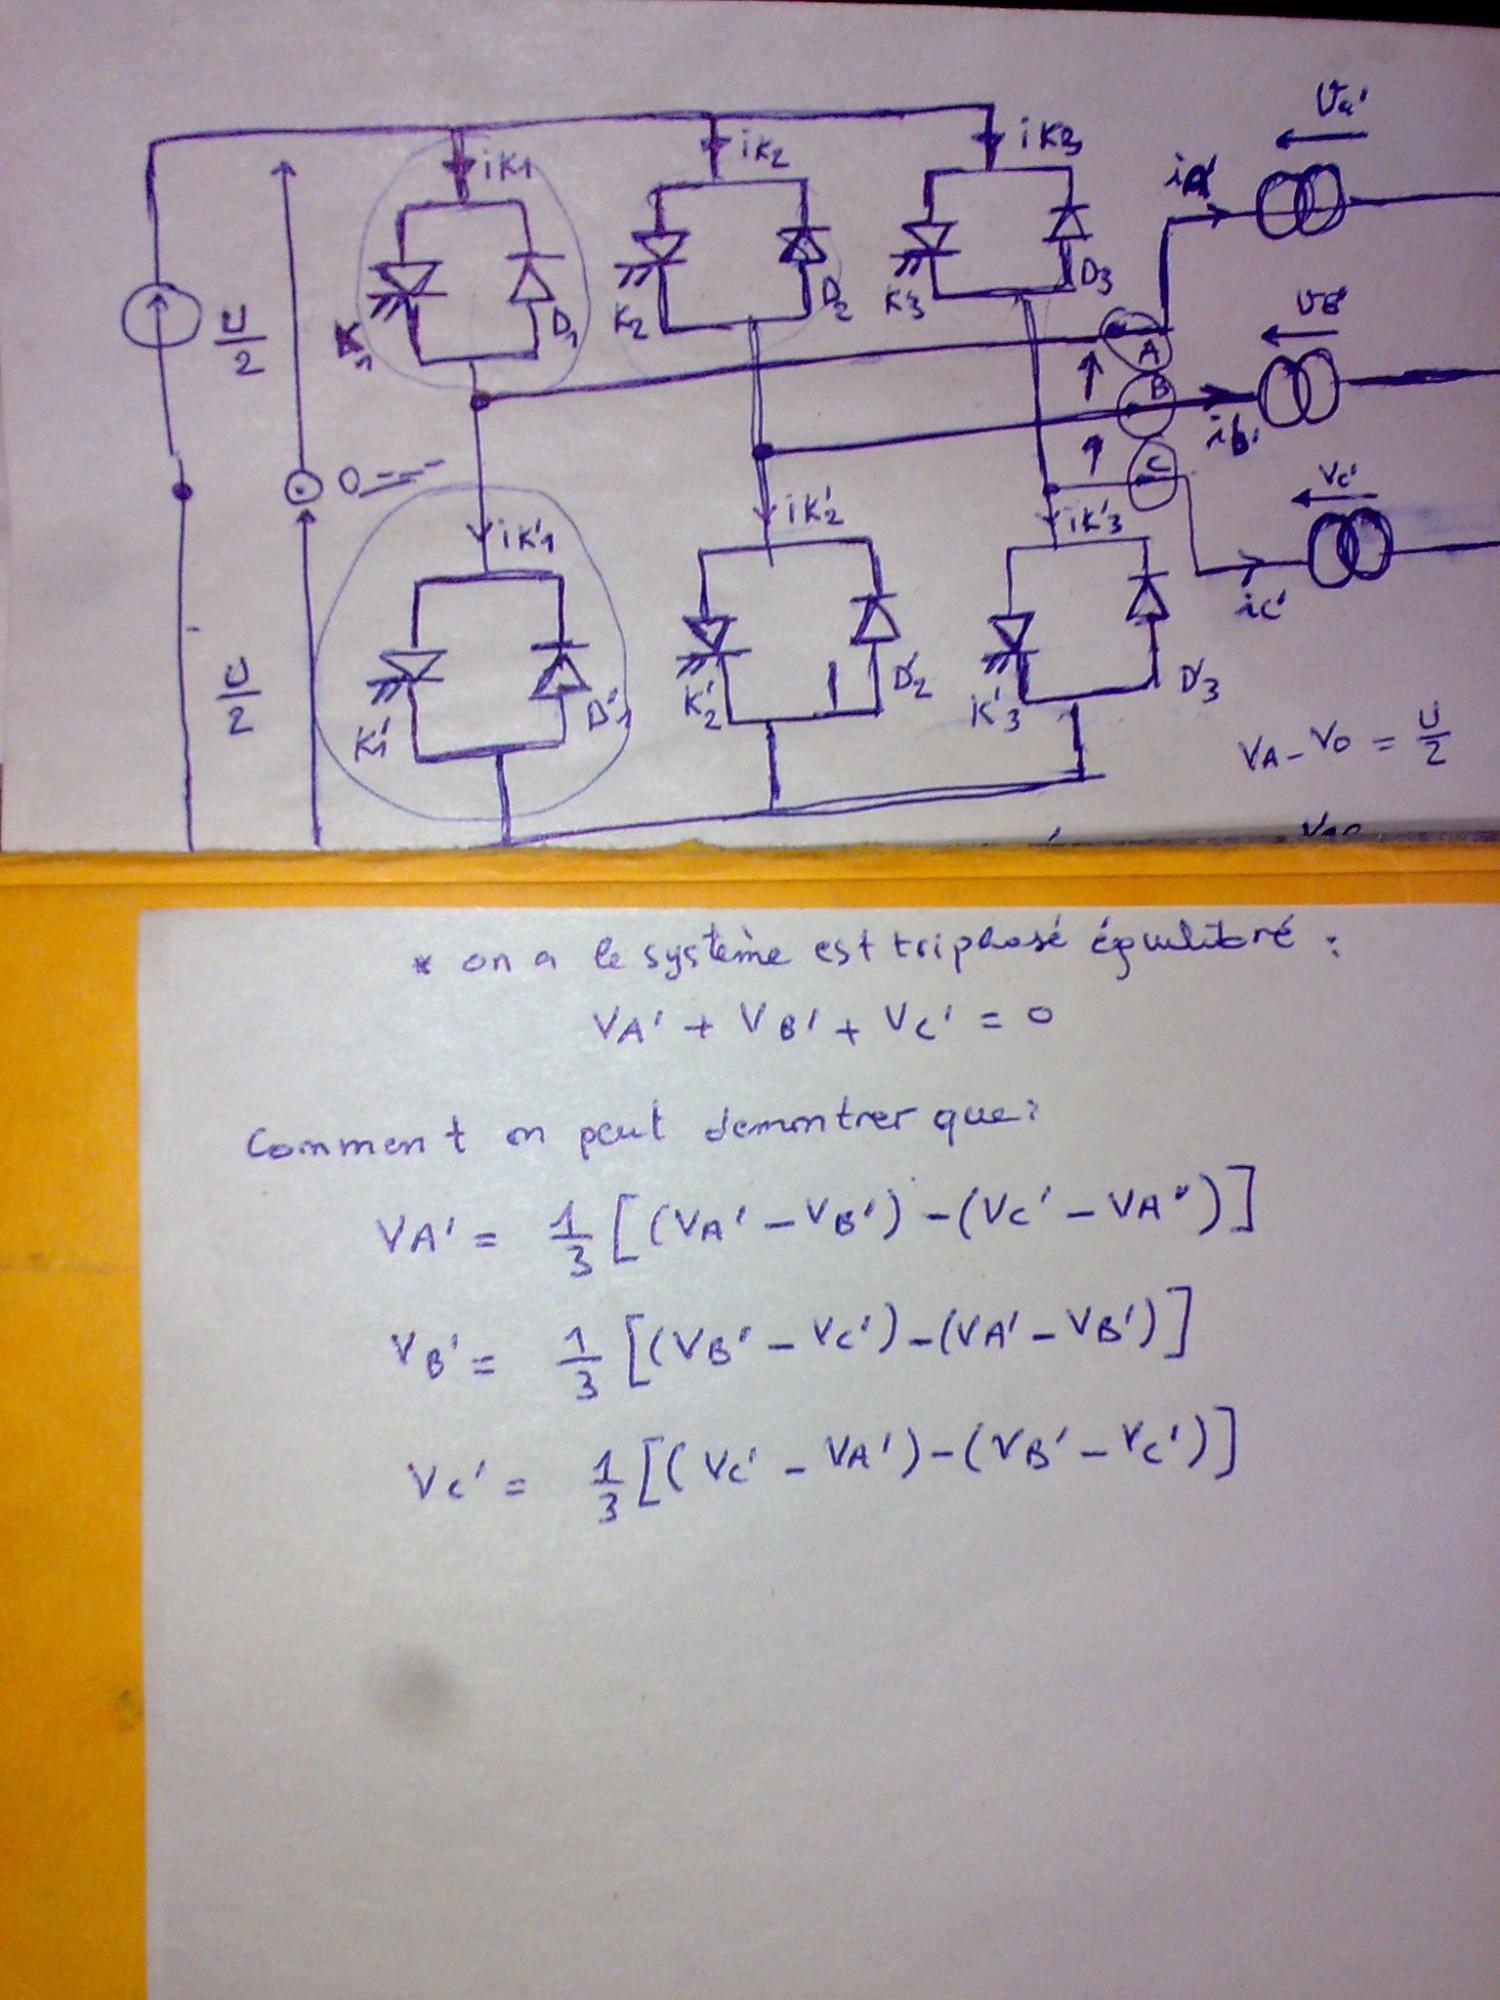 iK1
iK2
iK3
Va'
iA'
U/2
K1
D1
K2
D2
K3
D3
A
B
C
VB'
ib'
Vc'
ic'
O
iK'1
iK'2
iK'3
U/2
K'1
D'1
K'2
D'2
K'3
D'3
VA - VO = U/2
* on a le système est triphasé équilibré :
VA' + VB' + VC' = 0
Comment on peut demontrer que :
VA' = 1/3 [(VA' - VB') - (VC' - VA')]
VB' = 1/3 [(VB' - VC') - (VA' - VB')]
VC' = 1/3 [(VC' - VA') - (VB' - VC')]